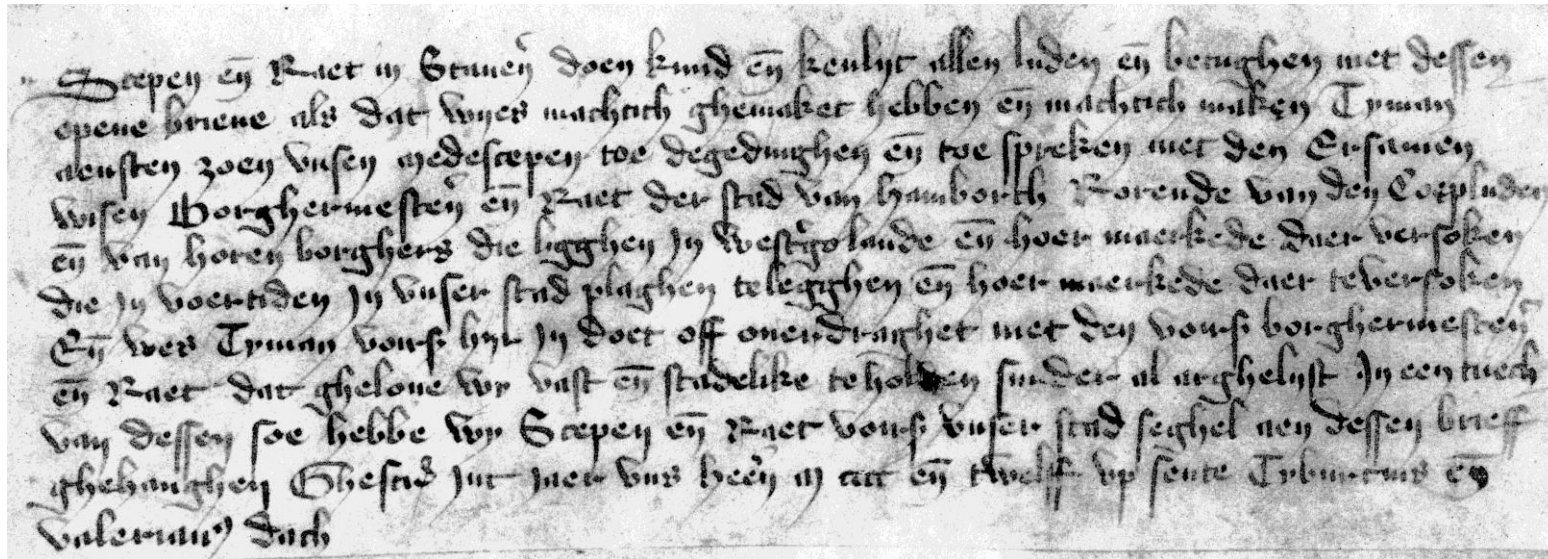 Scepen en̄ Raet in Stauer̃ doen kund en̄ kenlijt allen luden en̄ betughen met dessen
epene brieue als dat wijes machtich ghemaket hebben en̄ machtich maken Tyman
aensten zoen vnsen medescepen toe degedinghen en̄ toe spreken met den Ersamen
wisen Borghermester̃ en̄ Raet der stad van hamborch Rorende van den Coepluden
en̄ van horen borghers die ligghen in westṛgolande en̄ hoer maerkede daer versoken
die in voertiden in vnser stad plaghen te legighen en̄ hoer maerkede daer te versoken
En̄ wes Tyman vors hyr in doet off ouerdraghet met den vors borghermester̃
en̄ Raet dat gheloue wy vast en̄ stadelike te holden sunder al arghelijst In een tuech
van dessen soe hebbe wy Scepen en̄ Raet vors vnser stad seghel aen dessen brieff
ghehanghen Ghescr̃ int jaer vns heer̃ m cccc en̄ twelff vp sente Tyburcius en̄
valerian9 dach